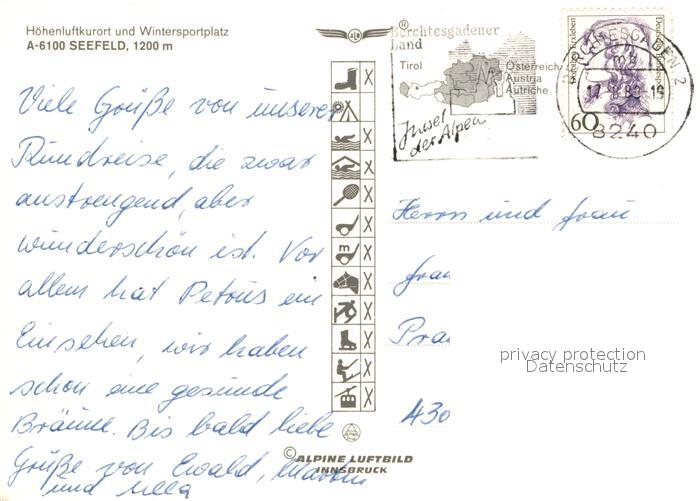 Höhenluftkurort und Wintersportplatz
A-6100 SEEFELD, 1200 m
Viele Grüße von unserer
Rundreise, die zwar
anstrengend, aber
wunderschön ist. Vor
allem hat Petrus ein
Einsehen, wir haben
schon eine gesunde
Bräune. Bis bald liebe
Grüße von Ewald,
und Ulla
Berchtesgadener
Land
Tirol
Österreich
Austria
Autriche
Insel
der Alpen
BERCHTESGADEN 2
8240
60
Herrn und Frau
Fran
Pra
430
privacy protection
Datenschutz
© ALPINE LUFTBILD
INNSBRUCK